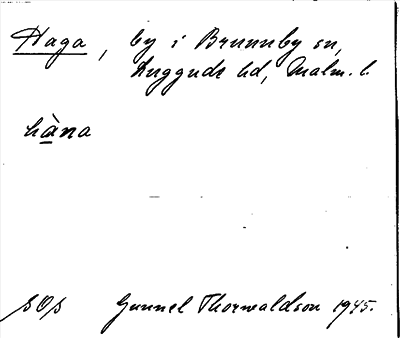 Haga, by i Brunnby sn,
Luggude hd, Malm. l.
hàna
SOS Gunnel Thorwaldson 1945.